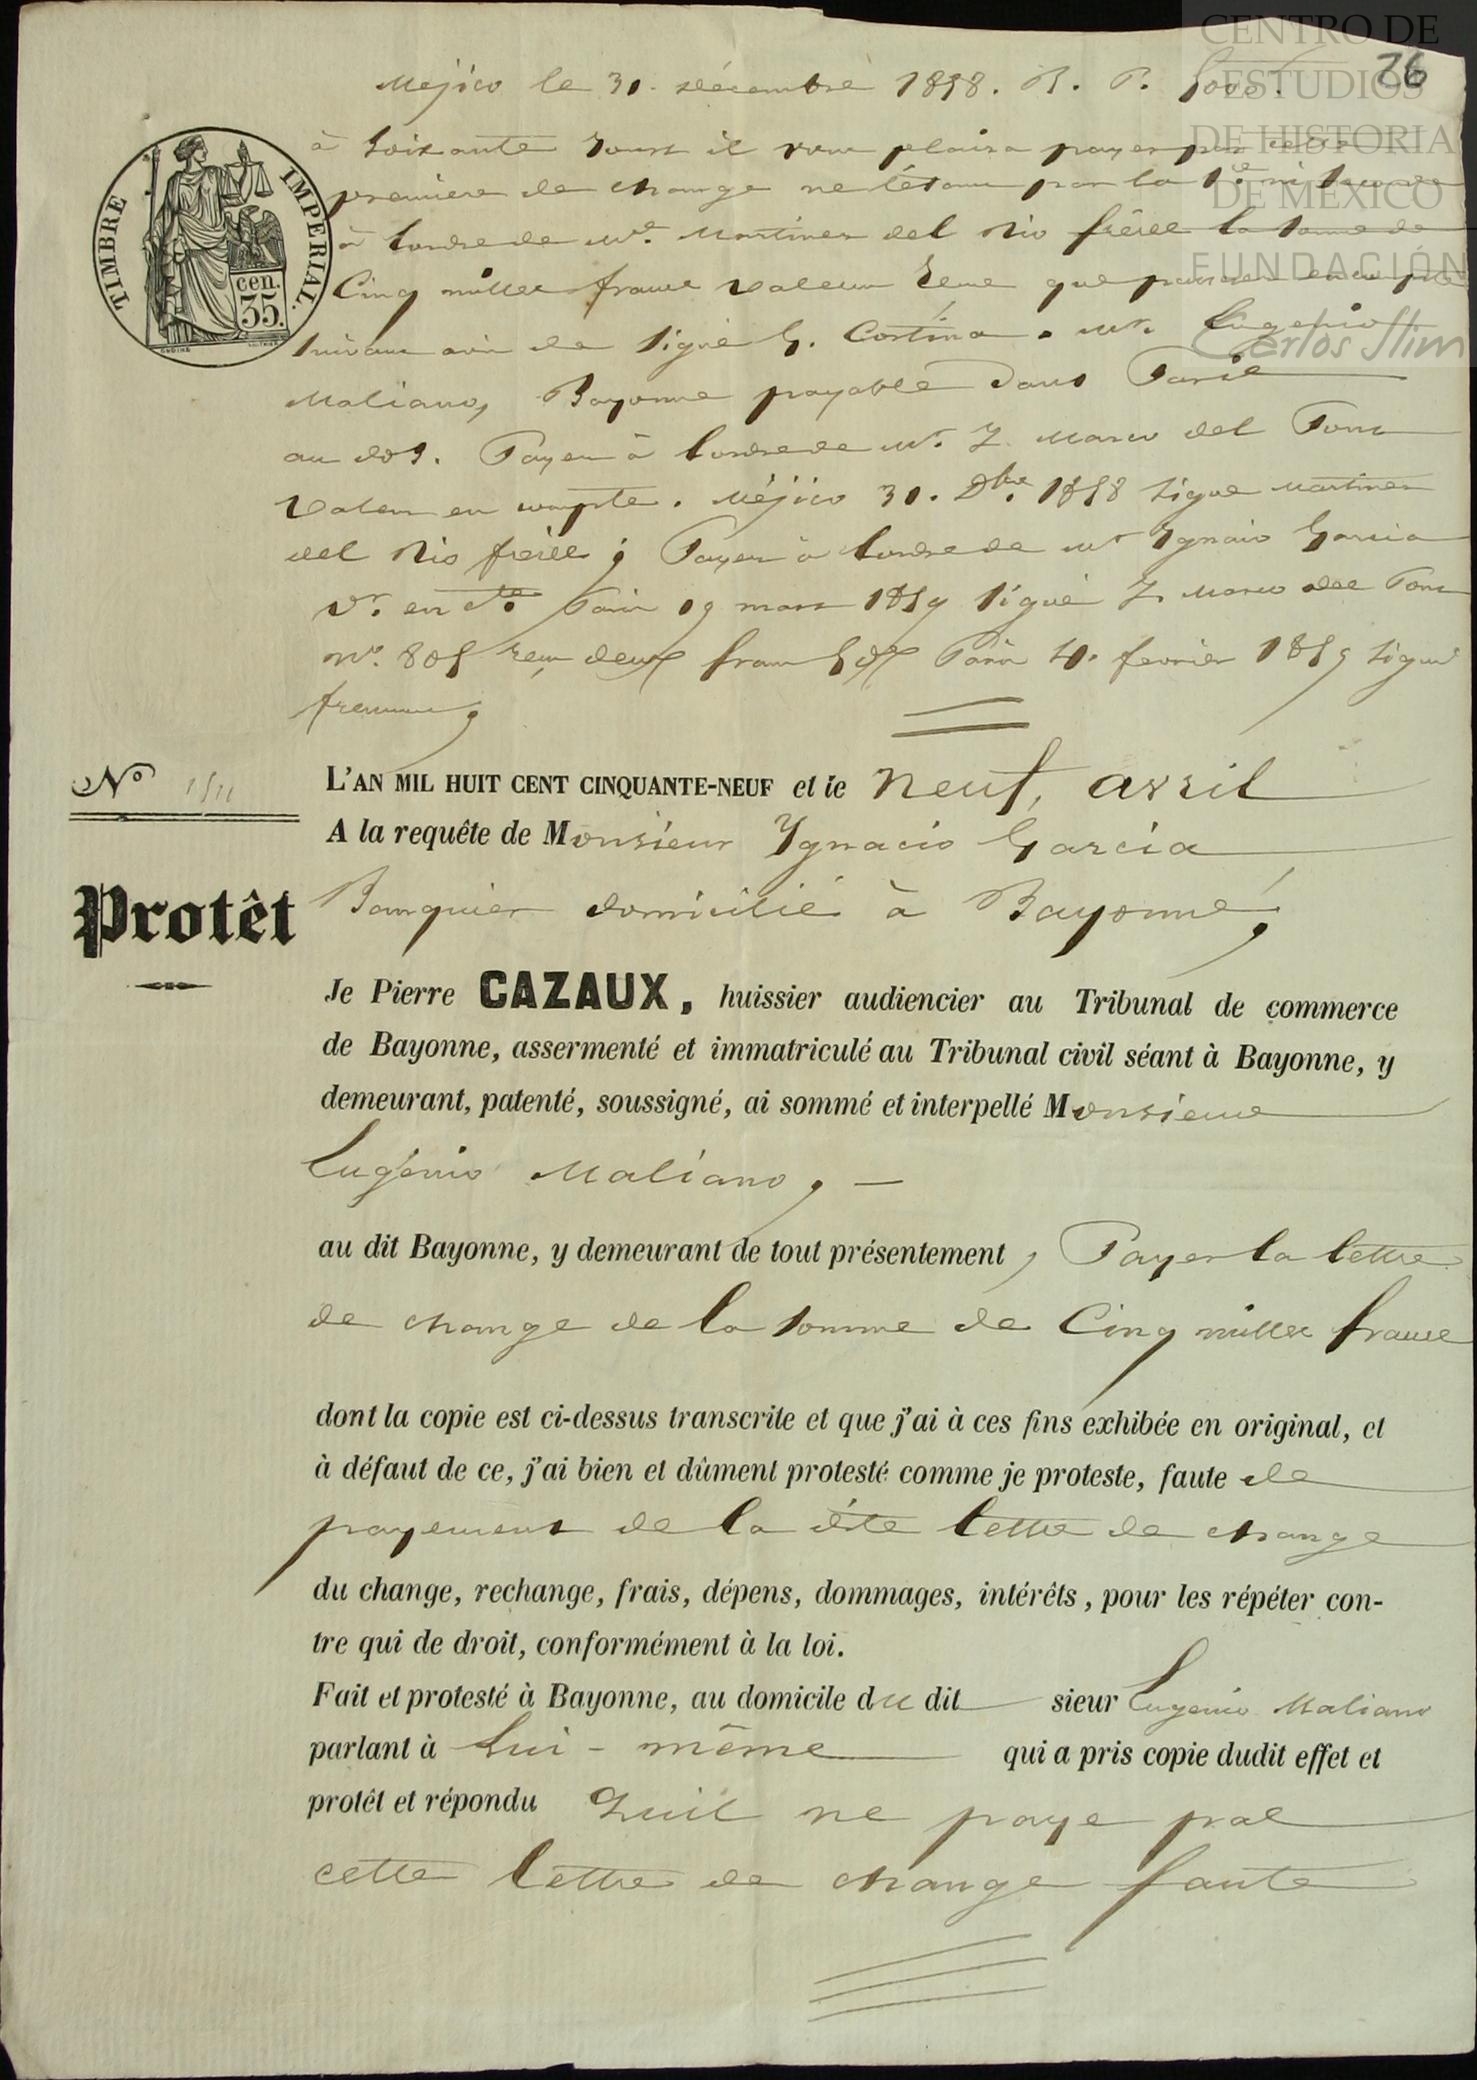 CENTRO DE
ESTUDIOS
DE HISTORIA
DE MÉXICO
FUNDACIÓN
Carlos Slim
26
TIMBRE IMPERIAL.
cen.
35.
Mejico le 30 décembre 1858. B. P. 5000.
à soixante jours il vous plaira payer par cette
premiere de change ne l'étant par la
à l'ordre de Mrs. Martinez del Rio frères la somme de
Cinq milles francs valeur reçue que passerez en compte
suivant avis de signé G. Cortina. Mr. Eugenio
Maliano, Bayonne payable dans Paris
au dos. Payez à l'ordre de Mr. J. Marco del Pont
valeur en compte. Méjico 30. Dbre. 1858 signé Martinez
del Rio frères; Payez à l'ordre de Mr Ygnacio Garcia
Vr. en cte Paris 19 mars 1859 signé J. Marco del Pont
No. 805 reçu deux francs Paris 4. fevrier 1859 signé
No
Protêt
L'AN MIL HUIT CENT CINQUANTE-NEUF et le neuf, avril
A la requête de Monsieur Ygnacio Garcia
Banquier domicilié à Bayonne,
Je Pierre CAZAUX, huissier audiencier au Tribunal de commerce
de Bayonne, assermenté et immatriculé au Tribunal civil séant à Bayonne, y
demeurant, patenté, soussigné, ai sommé et interpellé Monsieur
Eugénio Maliano, —
au dit Bayonne, y demeurant de tout présentement, Payer la lettre
de change de la somme de Cinq milles francs
dont la copie est ci-dessus transcrite et que j'ai à ces fins exhibée en original, et
à défaut de ce, j'ai bien et dûment protesté comme je proteste, faute de
payement de la dite lettre de change
du change, rechange, frais, dépens, dommages, intérêts, pour les répéter con-
tre qui de droit, conformément à la loi.
Fait et protesté à Bayonne, au domicile du dit sieur Eugenio Maliano
parlant à Lui-même qui a pris copie dudit effet et
protêt et répondu quil ne paye pas
cette lettre de change faute